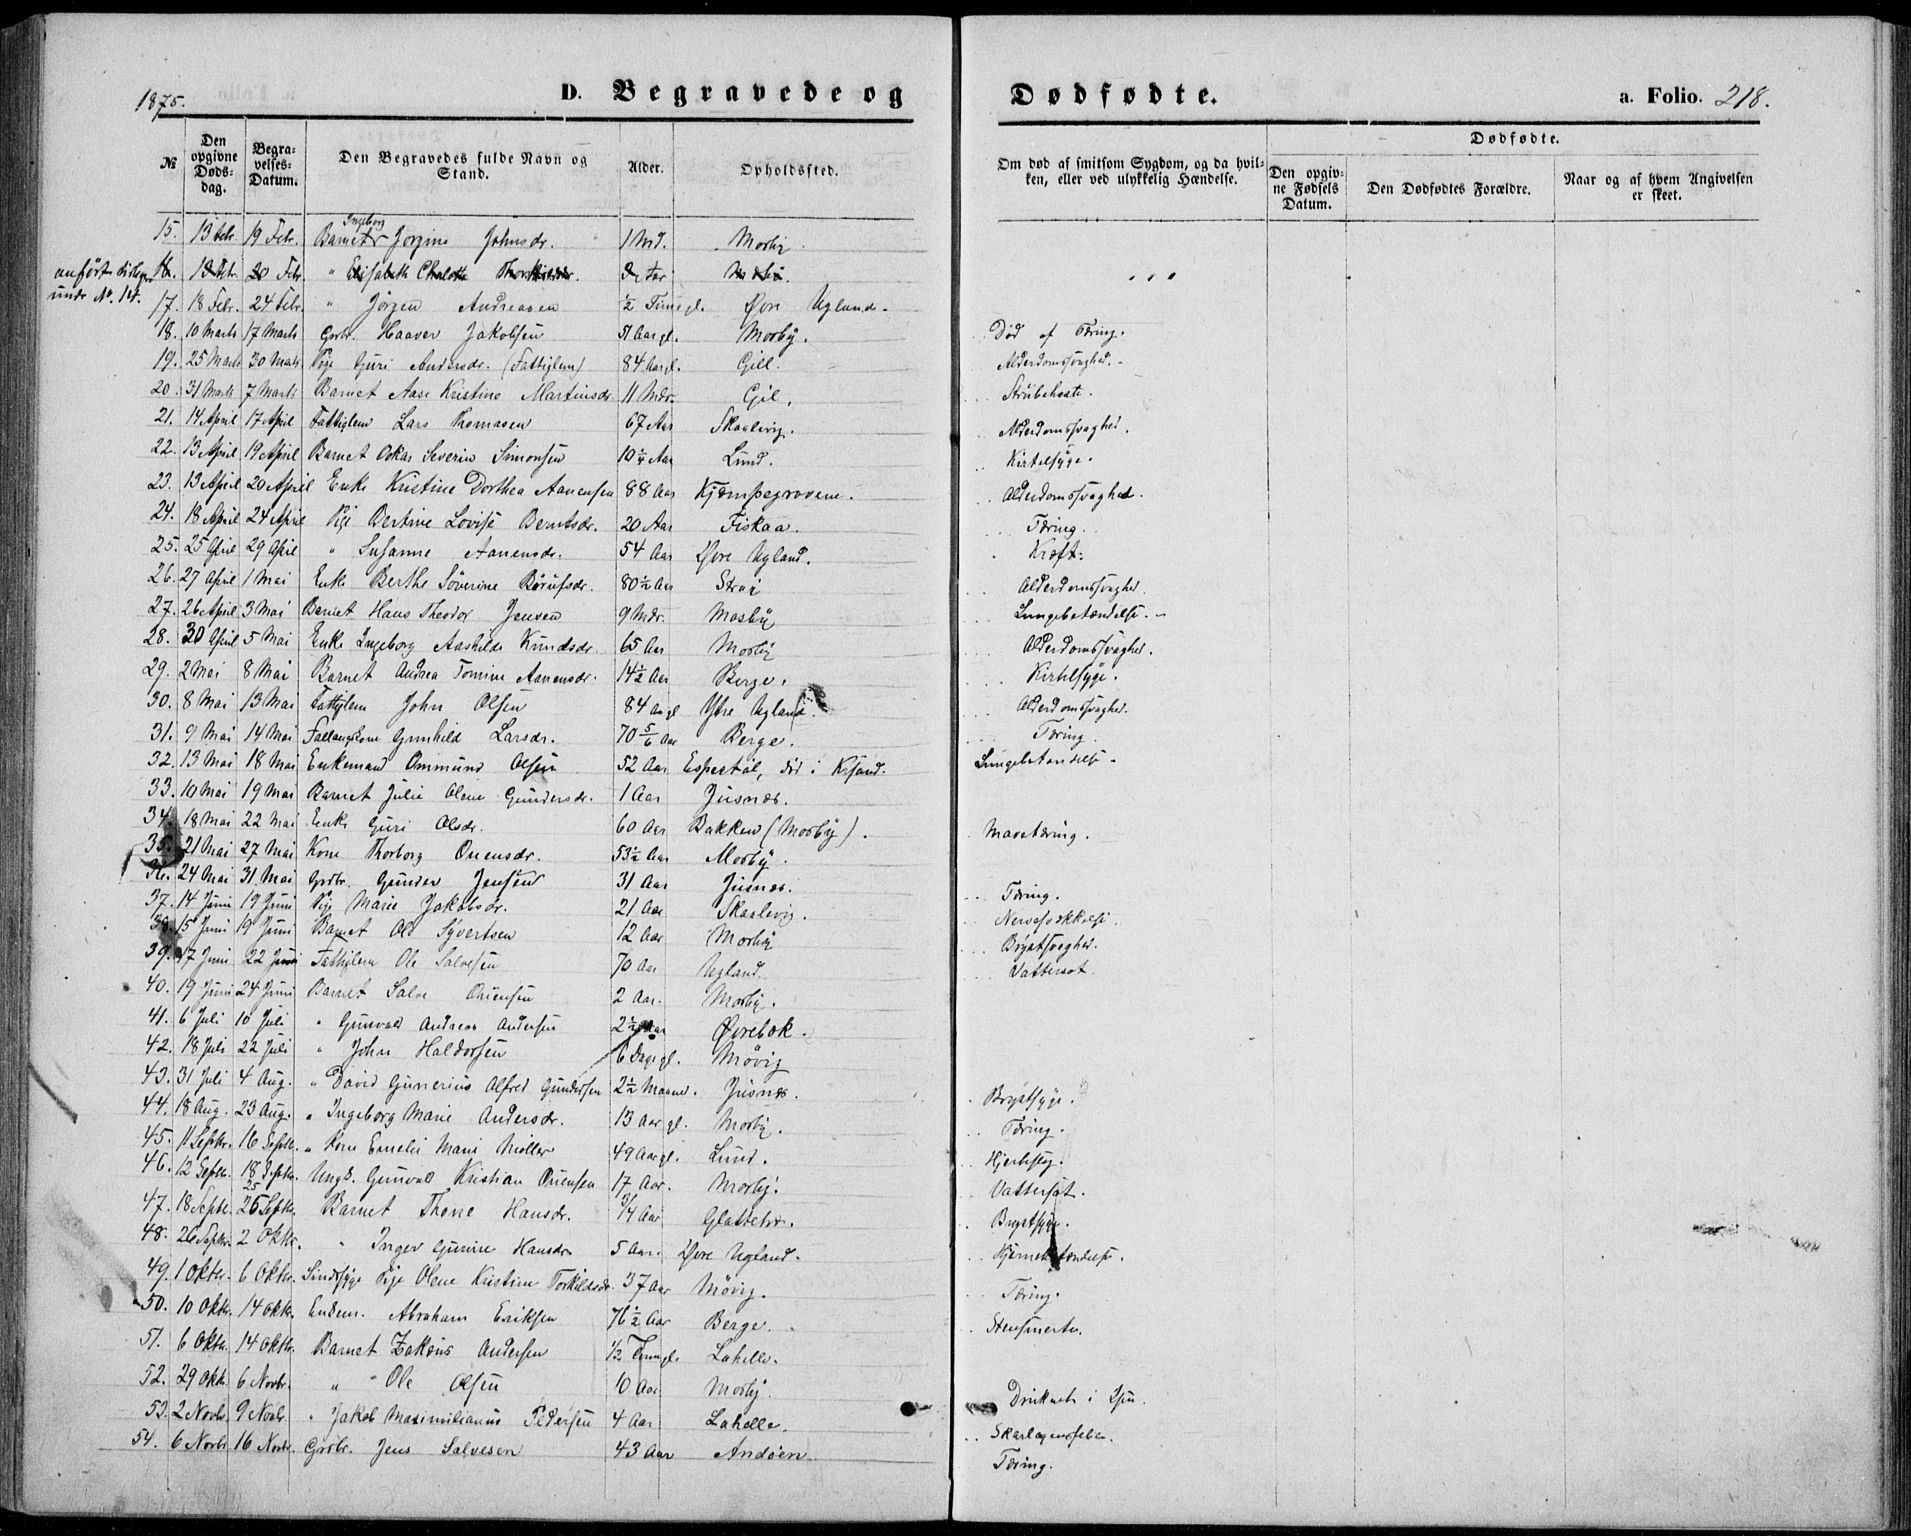 1875.
D. Begravede og Dødfødte. a. Folio. 218.
№ Den opgivne Døds-dag. Begra-velses-Datum. Den Begravedes fulde Navn og Stand. Alder. Opholdssted. Om død af smitsom Sygdom, og da hvil-ken, eller ved ulykkelig Hændelse. Dødfødte. Den opgiv-ne Fødsels Datum. Den Dødfødtes Forældre. Naar og af hvem Angivelsen er skeet.
Ingeborg
15. 13 Febr. 19 Febr. Barnet Jorgine Johnsdr. 1 Md. Mosby
anført tidligere under No. 14.
16. Febr. 20 Febr. " Elisabeth Charlotte Thorkildsdr. Mosby
17. 18 Febr. 24 Febr. " Jørgen Andreasen ½ Time gl. Øvre Ugland.
18. 10 Marts 17 Marts Grdbr. Haaver Jakobsen 51 Aar gl. Mosby. Død af Tæring.
19. 25 Marts 30 Marts Pige Guri Andersdr. (Fattiglem) 84 Aar gl. Gill. Alderdomssvaghed.
20. 31 Marts 7 Marts Barnet Aase Kristine Martinsdr. 11 Mdr. Gil. Strubehoste.
21. 14 April 17 April Fattiglem Lars Thomasen 67 Aar Skaalevig. Alderdomssvaghed.
22. 13 April 19 April Barnet Oskar Severin Simonsen 10¼ Aar Lund. Kirtelsyge.
23. 13 April 20 April Enke Kristine Dorthea Aanensen 88 Aar Kjæmpegroven. Alderdomssvaghed.
24. 18 April 24 April Pige Bertine Lovise Berntsdr. 20 Aar Fiskaa. Tæring.
25. 25 April 29 April " Susanne Aanensdr. 54 Aar Øvre Ugland. Kræft.
26. 27 April 1 Mai Enke Berthe Söverine Börufsdr. 80½ Aar Strai Alderdomssvaghed.
27. 26 April 3 Mai Barnet Hans Theodor Jensen 9 Mdr. Mosby Lungebetændelse.
28. 30 April 5 Mai Enke Ingeborg Aashilde Knudsdr. 65 Aar Mosby Alderdomssvaghed.
29. 2 Mai 8 Mai Barnet Andrea Tomine Aanensdr. 14½ Aar Berge. Kirtelsyge.
30. 8 Mai 13 Mai Fattiglem John Olsen 84 Aar gl. Ytre Ugland. Alderdomssvaghed.
31. 9 Mai 14 Mai Gunhild Larsdr. 70 5/6 Aar Berge. Tæring.
32. 13 Mai 18 Mai Enkemand Ommund Olsen 52 Aar Espestöl, död i Krsand. Lungebetændelse.
33. 10 Mai 19 Mai Barnet Julie Olene Gundersdr. 1 Aar Jusnæs.
34. 18 Mai 22 Mai Enke Guri Olsdr. 60 Aar Bakken (Mosby). Mavetæring.
35. 21 Mai 27 Mai Kone Thorborg Onensdr. 53½ Aar Mosby.
36. 24 Mai 31 Mai Grdbr. Gunder Jensen 31 Aar Jusnæs. Tæring.
37. 14 Juni 19 Juni Pige Marie Jakobsdr. 21 Aar Skaalevig. Nervesvækkelse.
38. 15 Juni 19 Juni Barnet Ole Syvertsen 12 Aar Mosby Brystsvaghed.
39. 17 Juni 22 Juni Fattiglem Ole Salvesen 70 Aar Ugland. Vattersot.
40. 19 Juni 24 Juni Barnet Salve Onensen 2 Aar. Mosby.
41. 6 Juli 10 Juli " Gunvald Andreas Andersen 2½ Aar Øvrebøk.
42. 18 Juli 22 Juli " John Haldorsen 6 Dage gl. Mövig
43. 31 Juli 4 Aug. " David Gunerius Alfred Gundersen 2½ Maaned. Jusnæs. Brystsyge.
44. 18 Aug. 23 Aug. " Ingeborg Marie Andersdr. 13 Aar gl. Mosby. Tæring.
45. 11 Septbr. 16 Septbr. " Kone Emelie Marie Möller 49 Aar gl. Lund.
46. 12 Septbr. 18 Septbr. Ungk. Gunvald Kristian Onensen 17 Aar. Mosby. Vattersot.
25
47. 18 Septbr. 26 Septbr. Barnet Thone Hansdr. 3/4 Aar Glattetre. Brystsyge.
48. 26 Septbr. 2 Oktbr. " Inger Gurine Hansdr. 5 Aar. Øvre Ugland. Hjernebetændelse.
49. 1 Oktbr. 6 Oktbr. Sindssyge Pige Olene Kristine Torkildsdr. 37 Aar Mövig. Tæring.
50. 10 Oktbr. 14 Oktbr. Enkem. Abraham Eriksen 76½ Aar Berge. Stensmerter.
51. 6 Oktbr. 14 Oktbr. Barnet Zakæus Andersen ½ Time gl. Lahelle.
52. 29 Oktbr. 6 Novbr. " Ole Olsen 10 Aar Mosby. Druknet i
53. 2 Novbr. 9 Novbr. " Jakob Maximilianus Pedersen 4 Aar Lahelle. Skarlagensfeber.
54. 6 Novbr. 16 Novbr. Grdbr. Jens Salvesen 43 Aar Andöen Tæring.